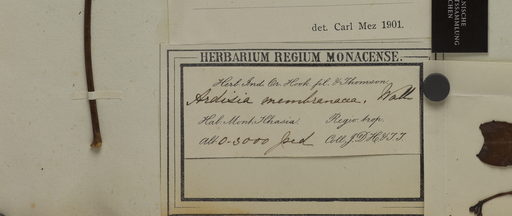 det. Carl Mez 1901.
NISCHE
TSSAMMLUNG
CHEN
HERBARIUM REGIUM MONACENSE.
Herb. Ind. Or. Hook. fil. & Thomson.
Ardisia membranacea, Wall
Hab. Mont. Khasia. Regio trop.
Alt. 0-3000 ped Coll. J. D. H. & T. T.